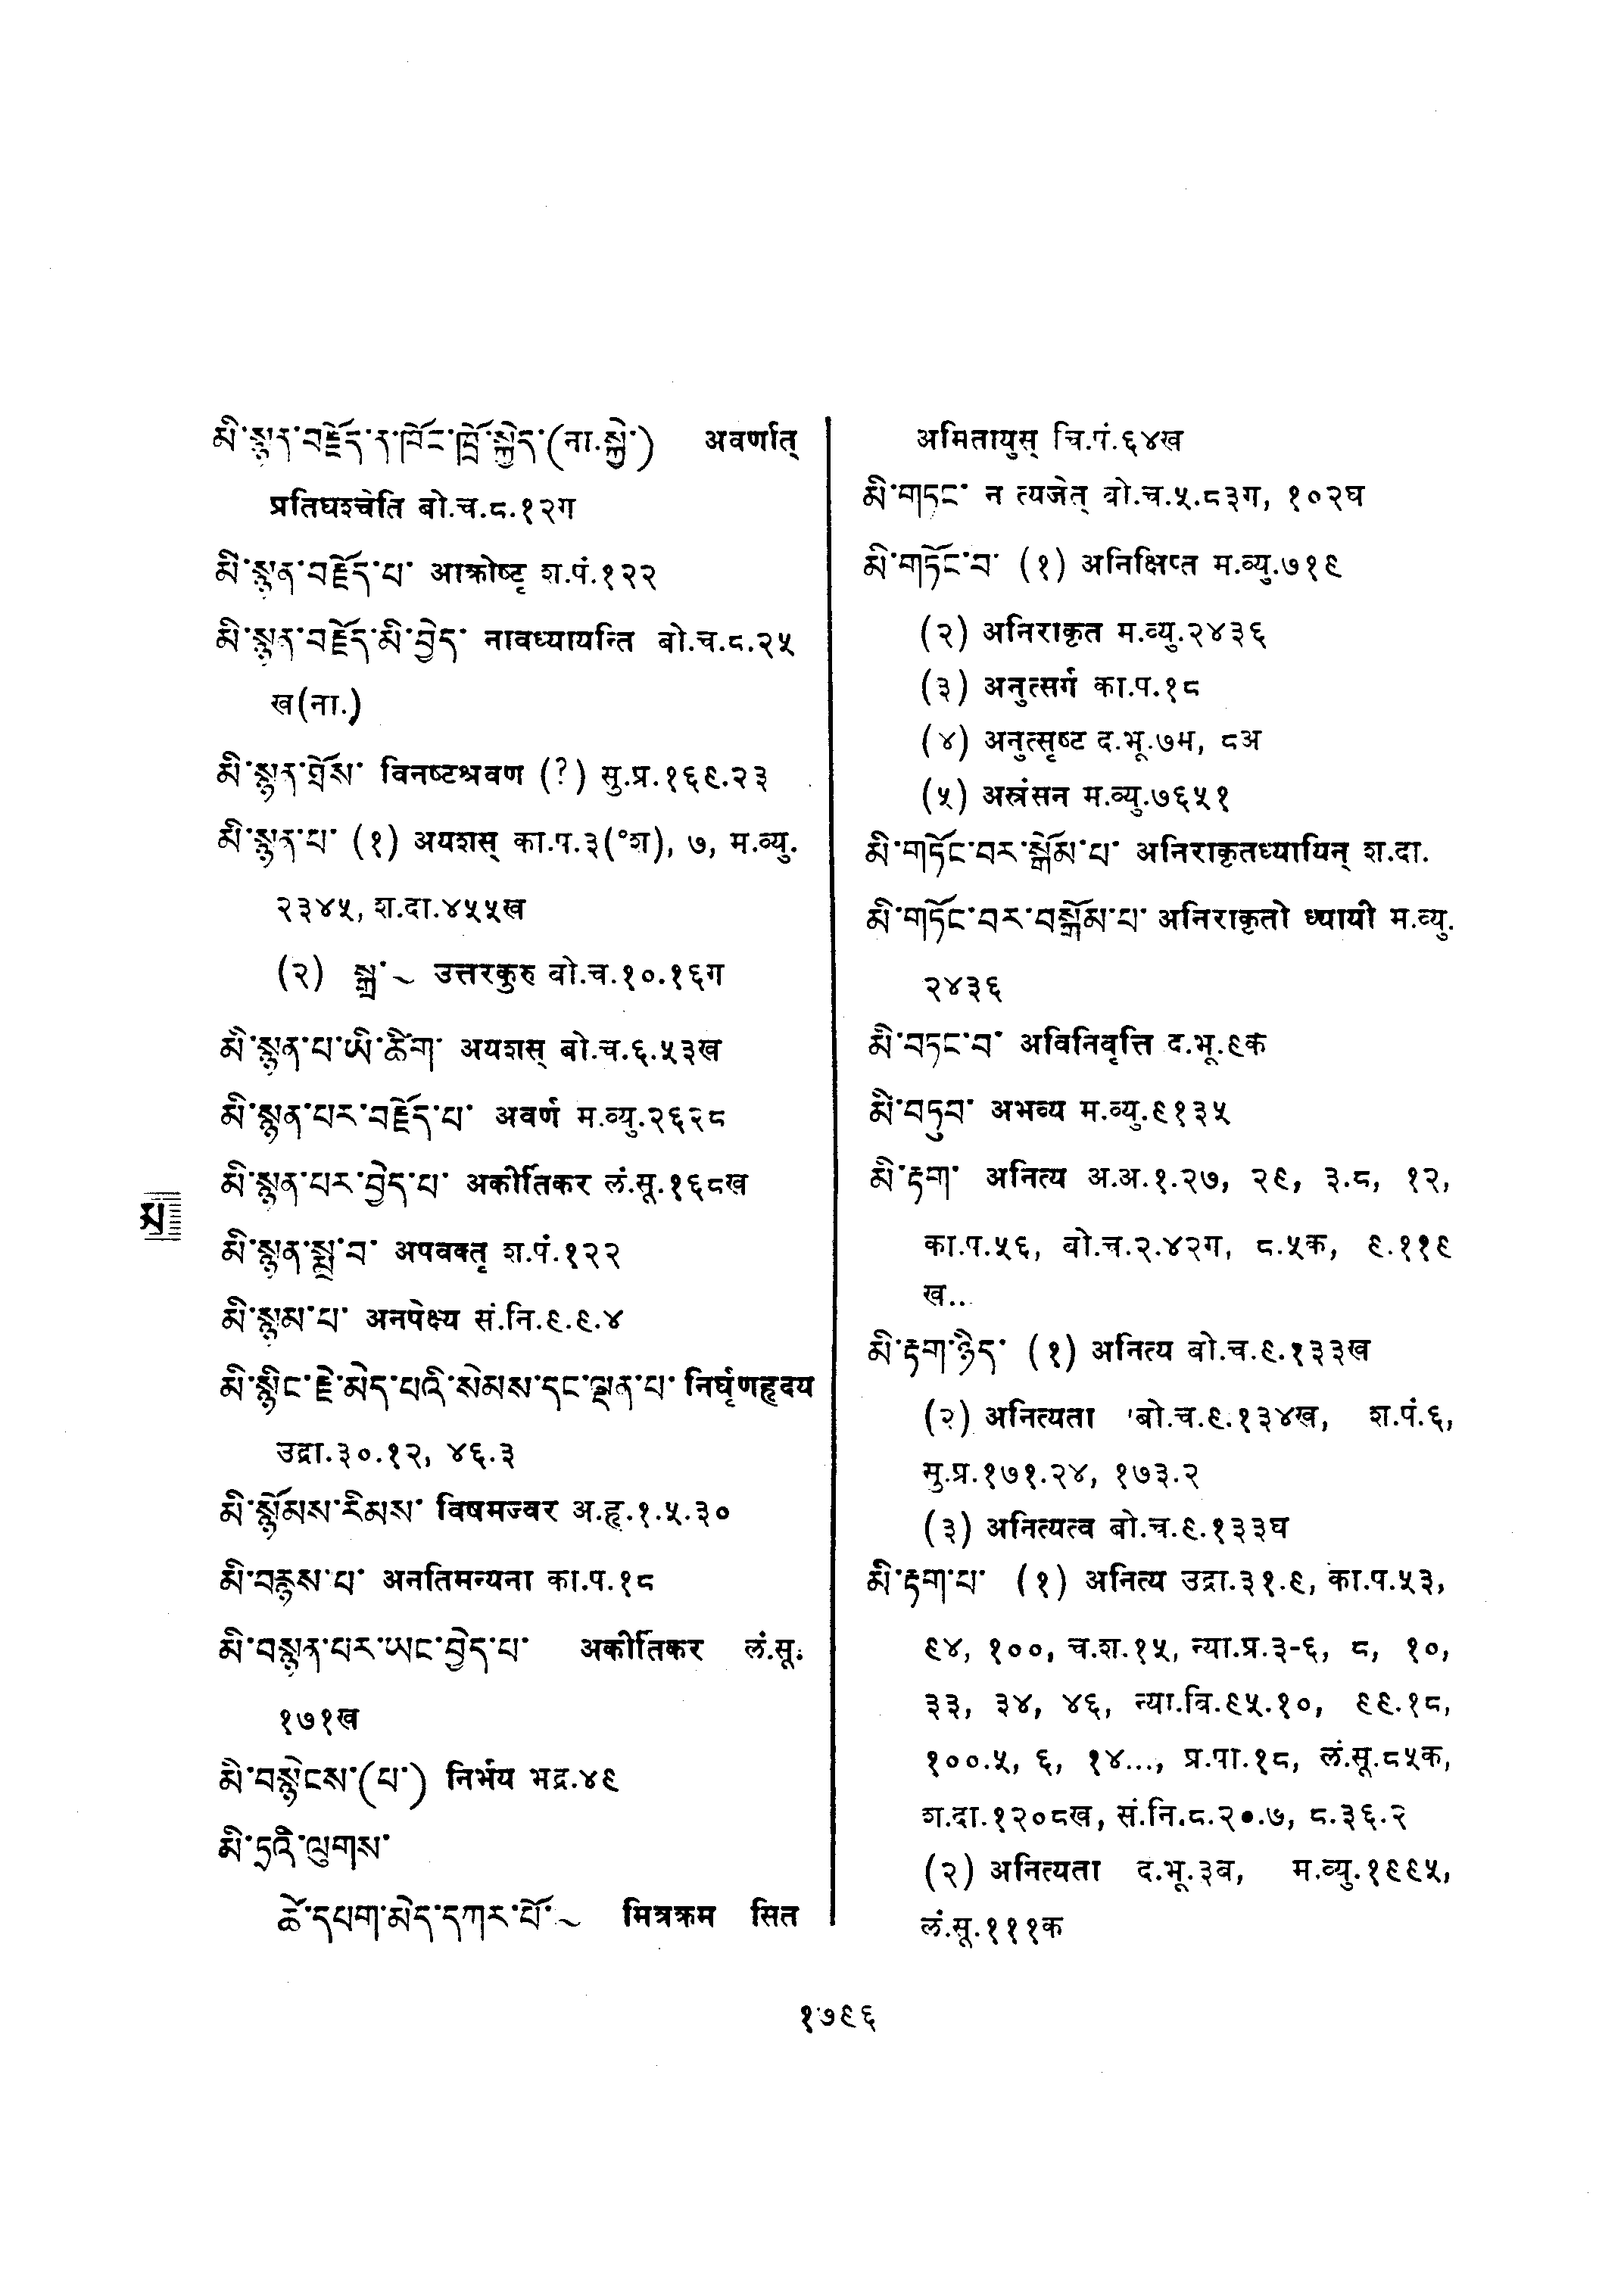 མི་སྙན་བརྗོད་ན་ཁོང་ཁྲོ་སྐྱེད་(ना.སྐྱེ་) अवर्णात्
प्रतिघश्चेति बो.च.८.१२ग
མི་སྙན་བརྗོད་པ་ आक्रोष्टृ श.पं.१२२
མི་སྙན་བརྗོད་མི་བྱེད་ नावध्यायन्ति बो.च.८.२५
ख(ना.)
མི་སྙན་ཐོས་ विनष्टश्रवण (?) सु.प्र.१६९.२३
མི་སྙན་པ་ (१) अयशस् का.प.३(°श), ७, म.व्यु.
२३४५, श.दा.४५५ख
(२) སྒྲ་~ उत्तरकुरु बो.च.१०.१६ग
མི་སྙན་པ་ཡི་ཚིག་ अयशस् बो.च.६.५३ख
མི་སྙན་པར་བརྗོད་པ་ अवर्ण म.व्यु.२६२८
མི་སྙན་པར་བྱེད་པ་ अकीर्तिकर लं.सू.१६८ख
མི་སྙན་སྨྲ་བ་ अपवक्तृ श.पं.१२२
མི་སྙམ་པ་ अनपेक्ष्य सं.नि.९.९.४
མི་སྙིང་རྗེ་མེད་པའི་སེམས་དང་ལྡན་པ་ निर्घृणहृदय
उद्रा.३०.१२, ४६.३
མི་སྙོམས་རིམས་ विषमज्वर अ.हृ.१.५.३०
མི་བརྙས་པ་ अनतिमन्यना का.प.१८
མི་བསྙན་པར་ཡང་བྱེད་པ་ अकीर्तिकर लं.सू.
१७१ख
མི་བསྙེངས་(པ་) निर्भय भद्र.४९
མི་ཏྲའི་ལུགས་
ཚེ་དཔག་མེད་དཀར་པོ་~ मित्रक्रम सित
མ
अमितायुस् चि.पं.६४ख
མི་གཏང་ न त्यजेत् बो.च.५.८३ग, १०२घ
མི་གཏོང་བ་ (१) अनिक्षिप्त म.व्यु.७१९
(२) अनिराकृत म.व्यु.२४३६
(३) अनुत्सर्ग का.प.१८
(४) अनुत्सृष्ट द.भू.७म, ८अ
(५) अस्रंसन म.व्यु.७६५१
མི་གཏོང་བར་སྒོམ་པ་ अनिराकृतध्यायिन् श.दा.
མི་གཏོང་བར་བསྒོམ་པ་ अनिराकृतो ध्यायी म.व्यु.
२४३६
མི་བཏང་བ་ अविनिवृत्ति द.भू.९क
མི་བཏུབ་ अभव्य म.व्यु.९१३५
མི་རྟག་ अनित्य अ.अ.१.२७, २९, ३.८, १२,
का.प.५६, बो.च.२.४२ग, ८.५क, ९.११९
ख..
མི་རྟག་ཉིད་ (१) अनित्य बो.च.९.१३३ख
(२) अनित्यता बो.च.९.१३४ख, श.पं.६,
सु.प्र.१७१.२४, १७३.२
(३) अनित्यत्व बो.च.९.१३३घ
མི་རྟག་པ་ (१) अनित्य उद्रा.३१.९, का.प.५३,
९४, १००, च.श.१५, न्या.प्र.३-६, ८, १०,
३३, ३४, ४६, न्या.वि.९५.१०, ९९.१८,
१००.५, ६, १४..., प्र.पा.१८, लं.सू.८५क,
श.दा.१२०८ख, सं.नि.८.२०.७, ८.३६.२
(२) अनित्यता द.भू.३ब, म.व्यु.१९९५,
लं.सू.१११क
१७९६